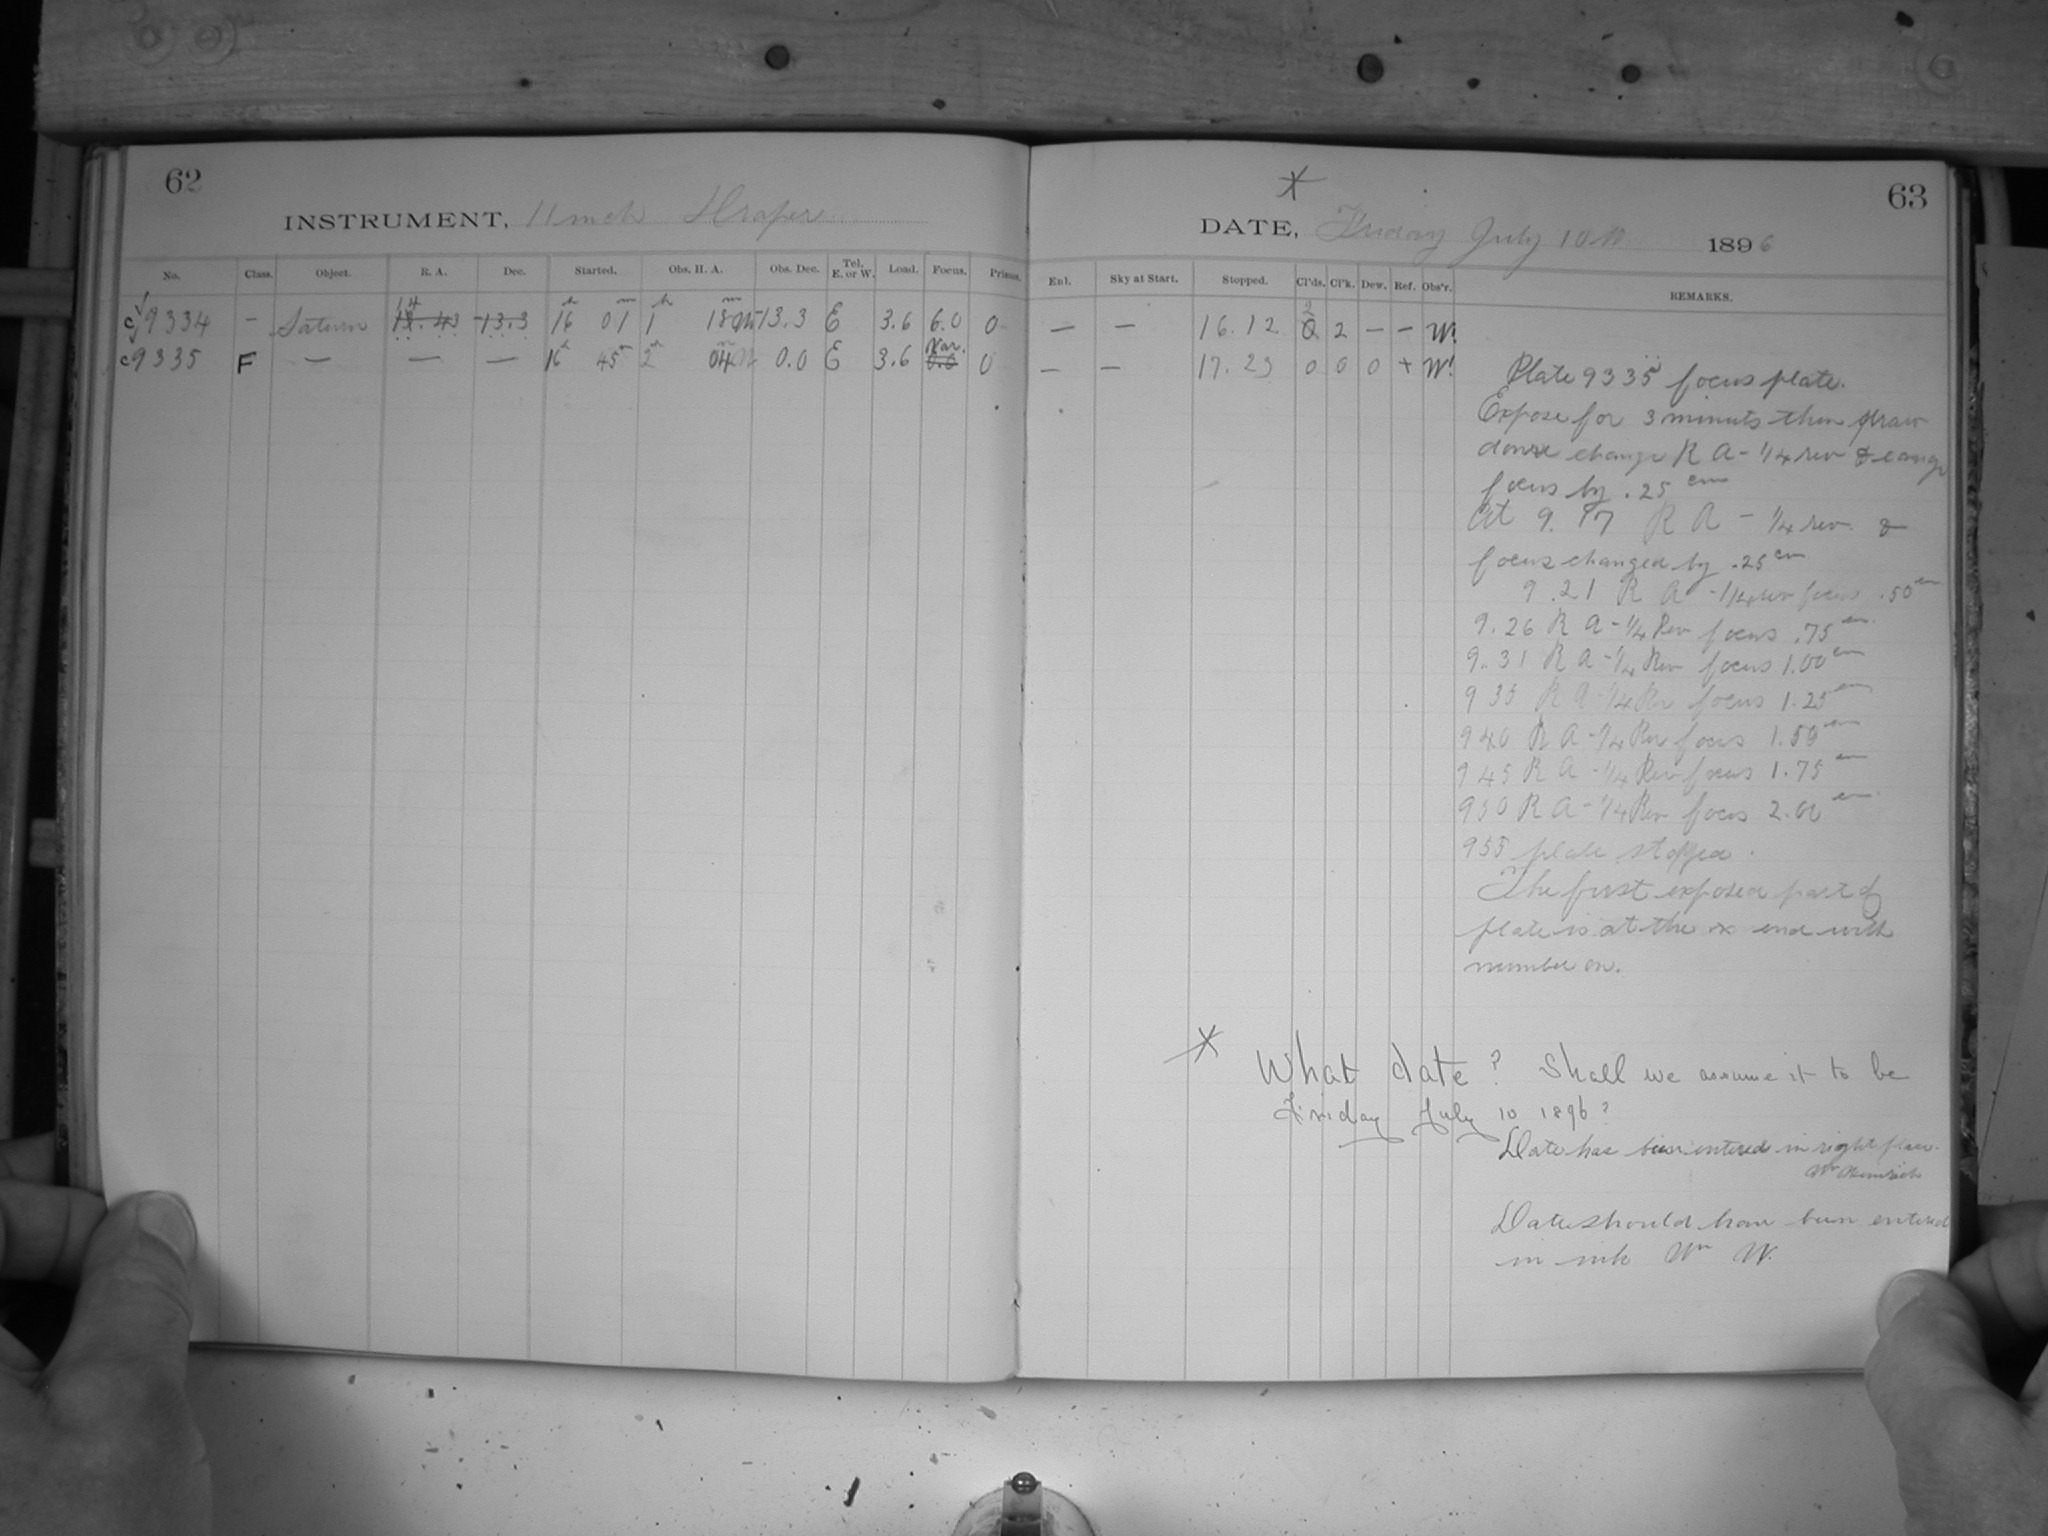 62
INSTRUMENT, 11 inch Draper
No. Class. Object. R. A. Dec. Started. Obs. H. A. Obs. Dec. Tel. E. or W. Load. Focus. Prisms.
c 9334 – Saturn 14 . 43 -13.3 16 h 01 m 1 h 18 m -13.3 E 3.6 6.0 0
c 9335 F — — — 16 h 45 m 2 h 04 m 0.0 E 3.6 Var. 0
* 63
DATE, Friday July 10th 1896
Enl. Sky at Start. Stopped. Cl'ds. Cl'k. Dew. Ref. Obs'r. REMARKS.
— — 16.12 2 2 – – W!
— — 17.23 0 0 0 + W!
Plate 9335 focus plate.
Expose for 3 minuts then draw
down change R A - 1/4 rev & cange
focus by .25 cm
At 9.17 R A - 1/4 rev. &
focus changed by .25 cm
9.21 R A - 1/4 rev focus .50 cm
9.26 R A - 1/4 Rev focus .75 cm
9.31 R A - 1/4 Rev focus 1.00 cm
9 35 R A - 1/4 Rev focus 1.25 cm
9 40 R A - 1/4 Rev focus 1.50 cm
9 45 R A - 1/4 Rev focus 1.75 cm
9 50 R A - 1/4 Rev focus 2.00 cm
9 55 plate stopped.
The first exposed part of
plate is at the end with
number on.
* What date? Shall we assume it to be
Friday July 10 1896?
Date has been entered in right place.
Date should have been entered
in ink Wm W.